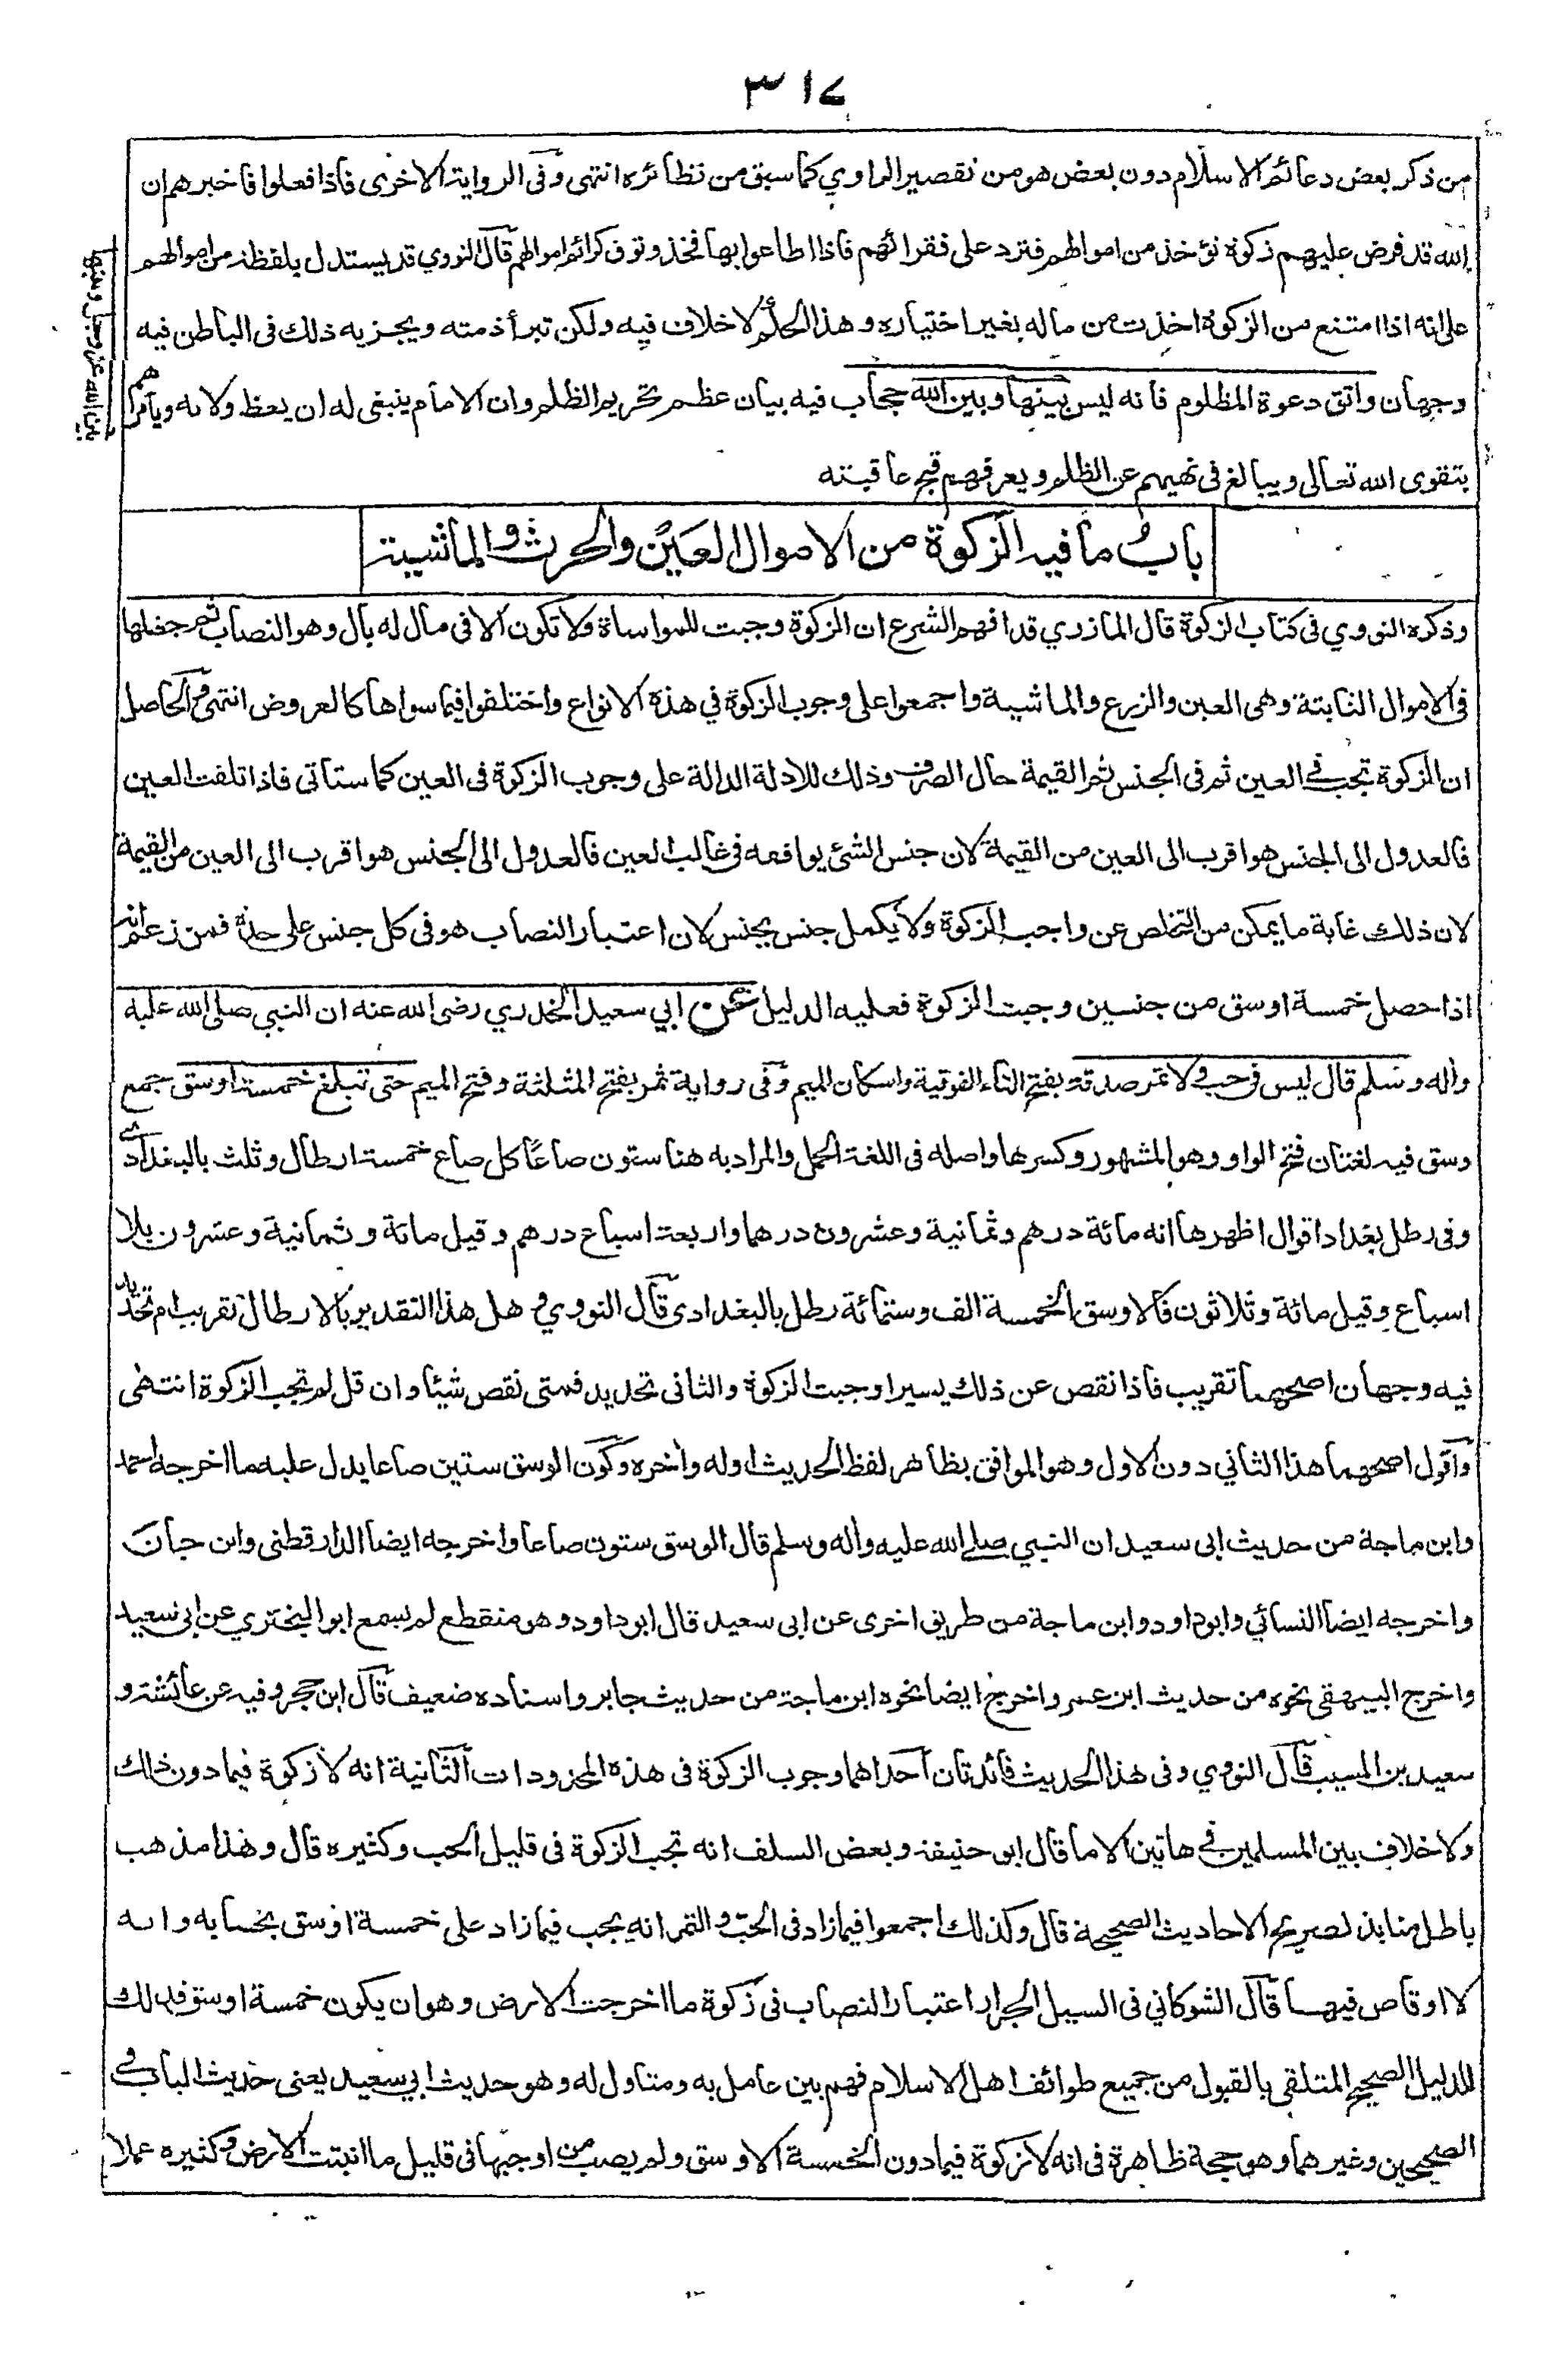 ٣١٧
من ذكر بعض دعائم الاسلام دون بعض هو من تقصير الراوي كما سبق من نظائره انتهى وفى الرواية الاخرى فاذا فعلوا فاخبرهم ان
الله قد فرض عليهم زكوة تؤخذ من اموالهم فترد على فقرائهم فاذا اطاعوا بها فخذ وتوق كرائم اموالهم قال النووي قد يستدل بلفظة من اموالهم
على انه اذا امتنع من الزكوة اخذت من ماله بغير اختياره وهذا الحكم لا خلاف فيه ولكن تبرأ ذمته ويجزيه ذلك فى الباطن فيه
وجهان واتق دعوة المظلوم فانه ليس بينها وبين الله حجاب فيه بيان عظم تحريم الظلم وان الامام ينبغى له ان يعظ ولاته ويأمرهم
بتقوى الله تعالى ويبالغ فى نهيهم عن الظلم ويعرفهم قبح عاقبته
باب ما فيه الزكوة من الاموال العين والحرث والماشية
وذكره النووي فى كتاب الزكوة قال المازري قد افهم الشرع ان الزكوة وجبت للمواساة ولا تكون الا فى مال له بال وهو النصاب ثم جعلها
فى الاموال النابتة وهى العين والزرع والماشية واجمعوا على وجوب الزكوة في هذه الانواع واختلفوا فيما سواها كالعروض انتهى والحاصل
ان الزكوة تجب فى العين ثم فى الجنس ثم القيمة حال الصرف وذلك للادلة الدالة على وجوب الزكوة فى العين كما ستاتى فاذا تلفت العين
فالعدول الى الجنس هو اقرب الى العين من القيمة لان جنس الشئ يوافقه فى غالب العين فالعدول الى الجنس هو اقرب الى العين من القيمة
لان ذلك غاية ما يمكن من التخلص عن واجب الزكوة ولا يكمل جنس بجنس لان اعتبار النصاب هو فى كل جنس على حدة فمن زعم انه
اذا حصل خمسة اوسق من جنسين وجبت الزكوة فعليه الدليل عن ابي سعيد الخدري رضى الله عنه ان النبي صلى الله عليه
واله وسلم قال ليس فى حب ولا تمر صدقة بفتح التاء الفوقية واسكان الميم وفى رواية ثمر بفتح المثلثة وفتح الميم حتى تبلغ خمسة اوسق جمع
وسق فيه لغتان فتح الواو وهو المشهور وكسرها واصله فى اللغة الحمل والمراد به هنا ستون صاعا كل صاع خمسة ارطال وثلث بالبغدادى
وفى رطل بغداد اقوال اظهرها انه مائة درهم وثمانية وعشرون درهما واربعة اسباع درهم وقيل مائة وثمانية وعشرون بلا
اسباع وقيل مائة وثلاثون فالاوسق الخمسة الف وستمائة رطل بالبغدادى قال النووي وهل هذا التقدير بالارطال تقريب ام تحديد
فيه وجهان اصحهما تقريب فاذا نقص عن ذلك يسيرا وجبت الزكوة والثانى تحديد فمتى نقص شيئا وان قل لم تجب الزكوة انتهى
واقول اصحهما هذا الثاني دون الاول وهو الموافق بظاهر لفظ الحديث اوله واخره وكون الوسق ستين صاعا يدل عليه ما اخرجه احمد
وابن ماجة من حديث ابى سعيد ان النبي صلى الله عليه واله وسلم قال الوسق ستون صاعا واخرجه ايضا الدارقطنى وابن حبان
واخرجه ايضا النسائي وابوداود وابن ماجة من طريق اخرى عن ابى سعيد قال ابوداود وهو منقطع لم يسمع ابو البختري عن ابى سعيد
واخرج البيهقى نحوه من حديث ابن عمر واخرج ايضا نحوه ابن ماجة من حديث جابر واسناده ضعيف قال ابن حجر وفيه عن عائشة و
سعيد بن المسيب قال النووي وفى هذا الحديث فائدتان احداهما وجوب الزكوة فى هذه المحزودات الثانية انه لا زكوة فيما دون ذلك
ولا خلاف بين المسلمين فى هاتين الا ما قال ابو حنيفة وبعض السلف انه تجب الزكوة فى قليل الحب وكثيره قال وهذا مذهب
باطل منابذ لصريح الاحاديث الصحيحة قال وكذلك اجمعوا فيما زاد فى الحب والتمر انه يجب فيما زاد على خمسة اوسق بحسابه وانه
لا اوقاص فيها قال الشوكاني فى السيل الجرار اعتبار النصاب فى زكوة ما اخرجت الارض وهو ان يكون خمسة اوسق فذلك
للدليل الصحيح المتلقى بالقبول من جميع طوائف اهل الاسلام فهم بين عامل به ومتاول له وهو حديث ابي سعيد يعنى حديث الباب فى
الصحيحين وغيرهما وهو حجة ظاهرة فى انه لا زكوة فيما دون الخمسة الاوسق ولم يصب من اوجبها فى قليل ما انبتت الارض وكثيره عملا